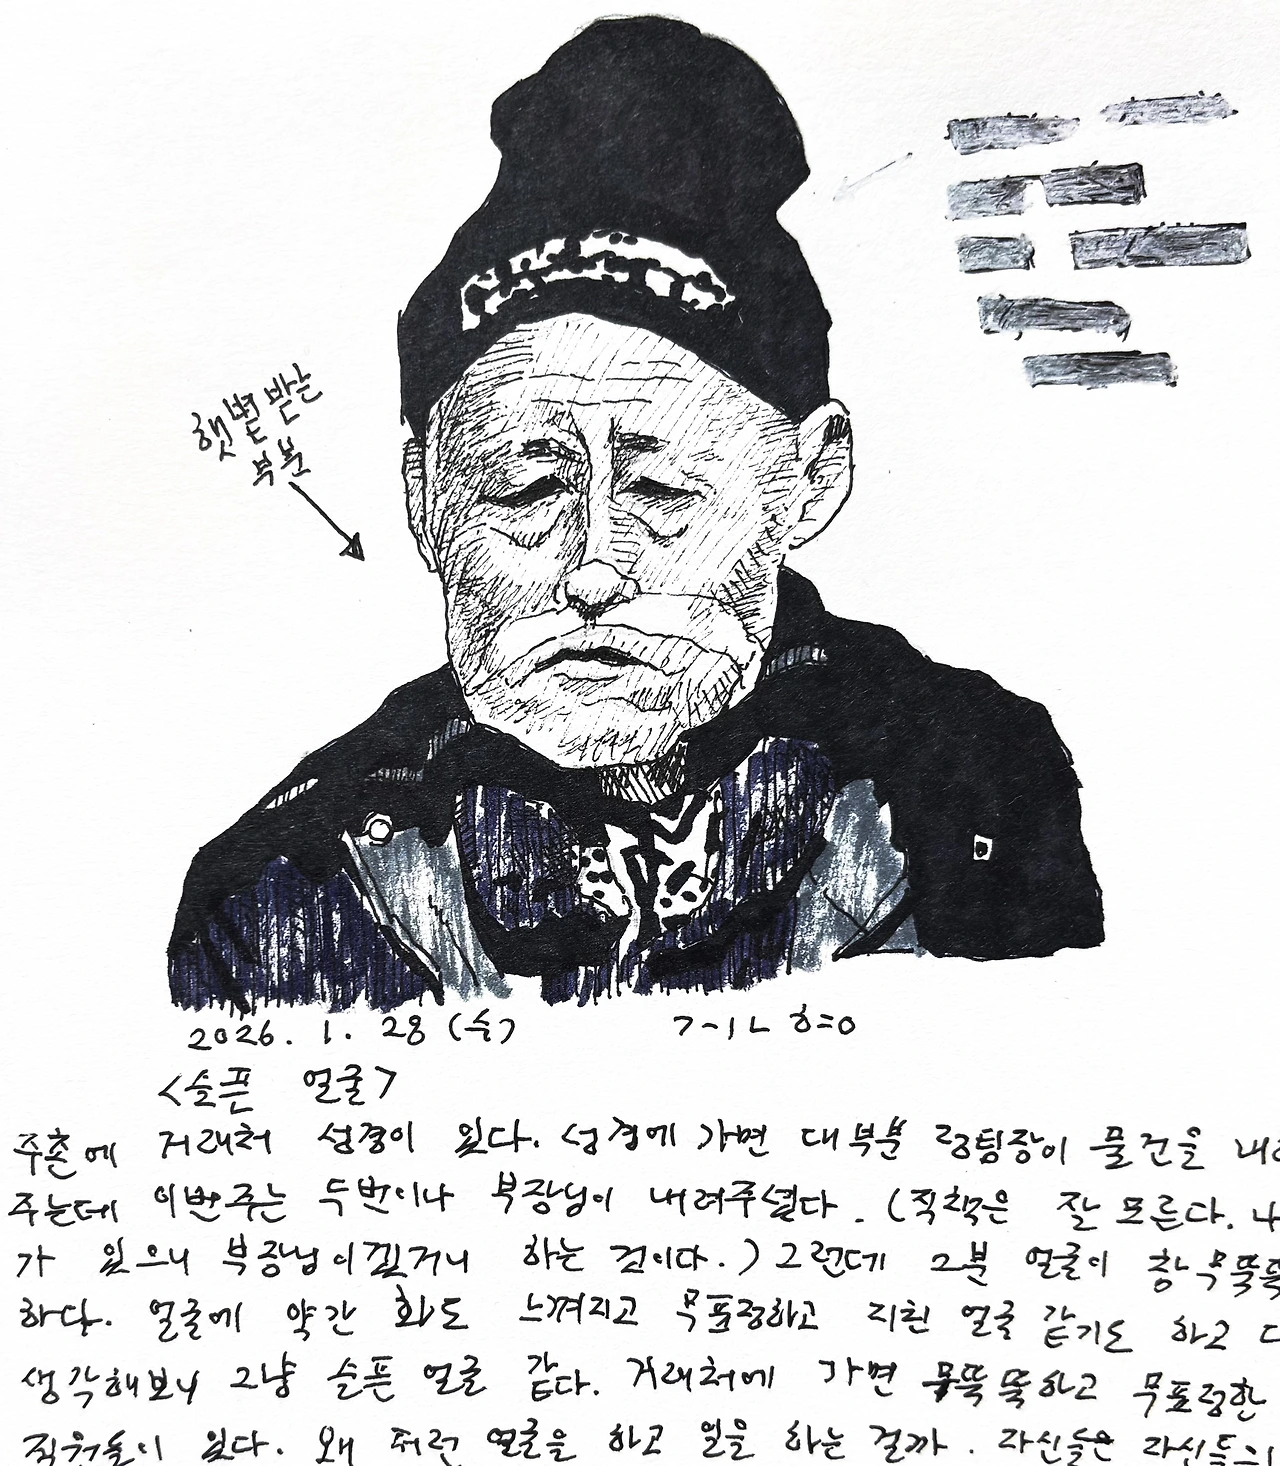 햇볕 받는
부분
2026. 1. 28 (수)
<슬픈 얼굴>
주촌에 거래처 성경이 있다. 성경에 가면 대부분 공팀장이 물건을 내려
주는데 이번주는 두번이나 부장님이 내려주셨다. (직책은 잘 모른다. 나
가 있으니 부장님이겠거니 하는 것이다.) 그런데 그분 얼굴이 참 무뚝뚝
하다. 얼굴에 약간 화도 느껴지고 무표정하고 지친 얼굴 같기도 하고 다
생각해보니 그냥 슬픈 얼굴 같다. 거래처에 가면 무뚝뚝하고 무표정한
직원들이 있다. 왜 저런 얼굴을 하고 일을 하는 걸까. 자신들은 자신들의